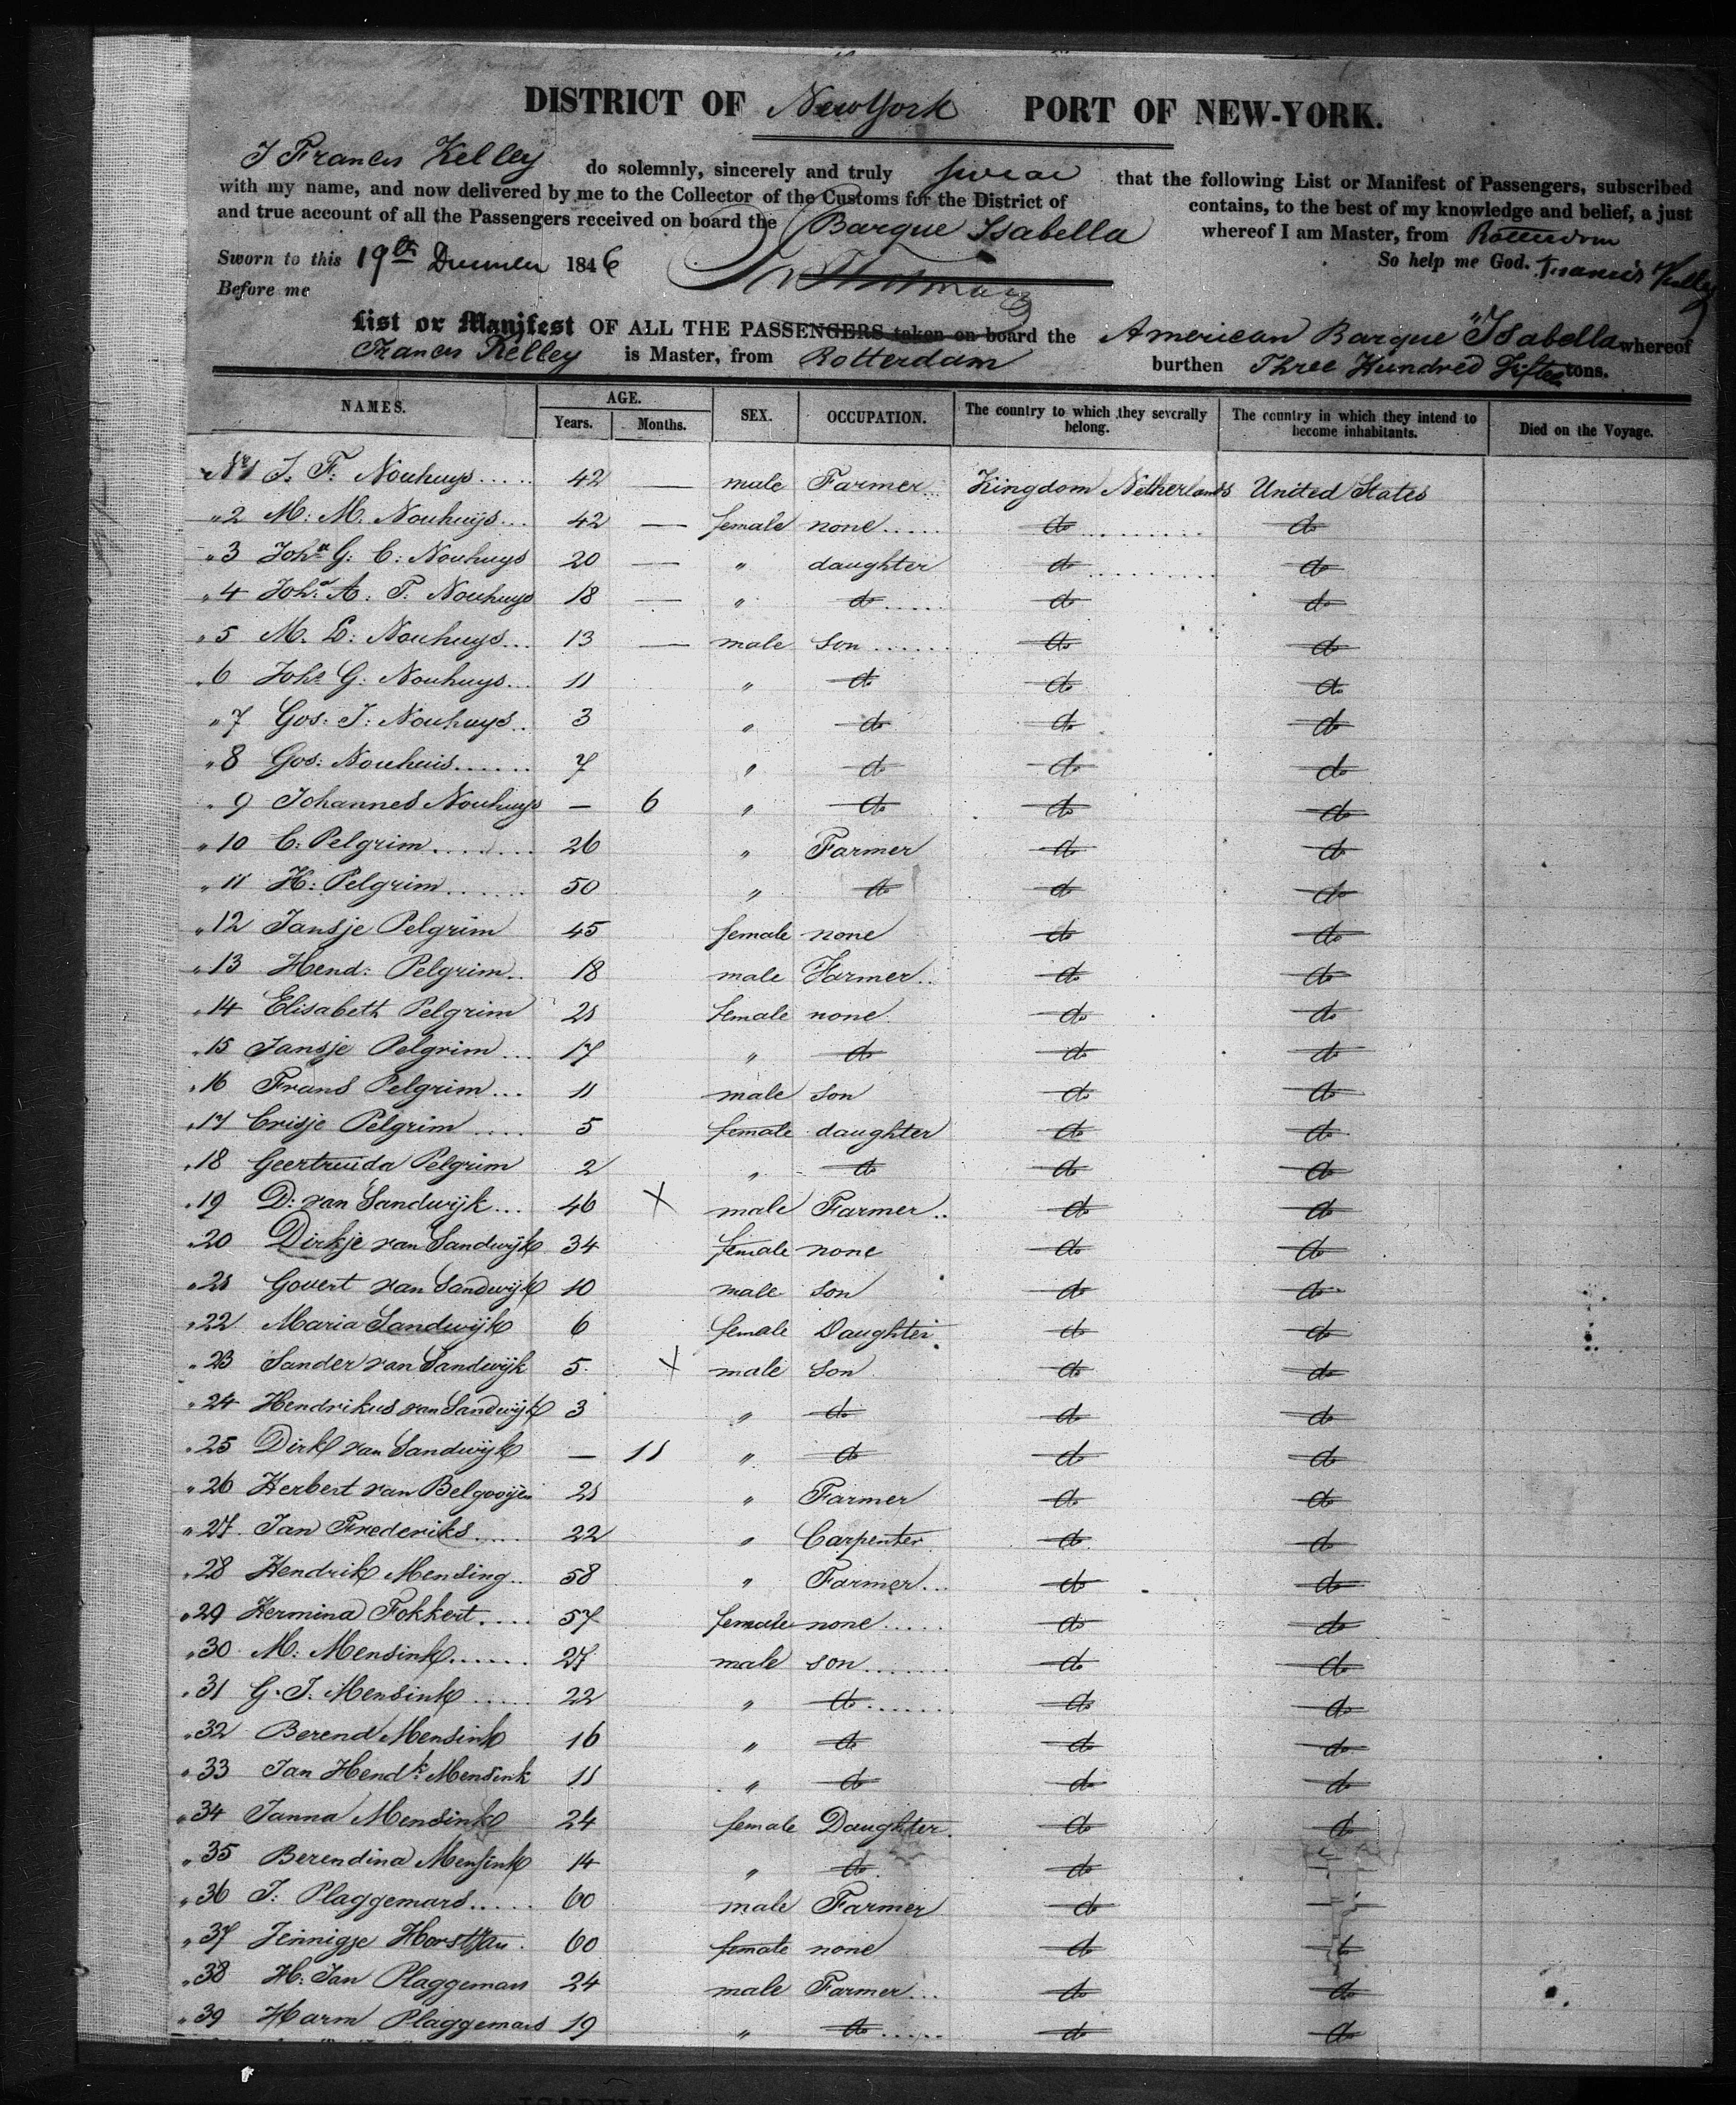 DISTRICT OF New York PORT OF NEW-YORK.
I Francis Kelley do solemnly, sincerely and truly swear that the following List or Manifest of Passengers, subscribed
with my name, and now delivered by me to the Collector of the Customs for the District of contains, to the best of my knowledge and belief, a just
and true account of all the Passengers received on board the Barque Isabella whereof I am Master, from Rotterdam
Sworn to this 19th December 1846 So help me God. Francis Kelley
Before me
List or Manifest OF ALL THE PASSENGERS taken on board the American Barque "Isabella whereof
Francis Kelley is Master, from Rotterdam burthen Three Hundred Fifteen tons.
NAMES. AGE. Years. Months. SEX. OCCUPATION. The country to which they severally belong. The country in which they intend to become inhabitants. Died on the Voyage.
No 1 J. F. Nouhuys..... 42 — male Farmer... Kingdom Netherlands United States
" 2 M. M. Nouhuys... 42 — female none..... do do
" 3 Joha G: C: Nouhuys 20 — " daughter do do
" 4 Joha A. P. Nouhuys 18 — " do..... do do
" 5 M. L: Nouhuys... 13 — male son...... do do
" 6 Johs G. Nouhuys... 11 " do do do
" 7 Gos: J: Nouhuys.. 3 " do do do
" 8 Gos: Nouhuis...... 7 " do do do
" 9 Johannes Nouhuys — 6 " do do do
" 10 C: Pelgrim....... 26 " Farmer do do
" 11 H: Pelgrim...... 50 " do do do
" 12 Jansje Pelgrim 45 female none do do
" 13 Hend: Pelgrim.. 18 male Farmer.. do do
" 14 Elisabeth Pelgrim 21 female none. do do
" 15 Jansje Pelgrim... 17 " do do do
" 16 Frans Pelgrim... 11 male son do do
" 17 Crisje Pelgrim.... 5 female daughter do do
" 18 Geertruuda Pelgrim 2 " do do do
" 19 D: van Sandwijk... 46 X male Farmer.. do do
" 20 Dirkje van Sandwijk 34 female none do do
" 21 Govert van Sandwijk 10 male son do do
" 22 Maria Sandwijk 6 female Daughter. do do
" 23 Sander van Sandwijk 5 X male son do do
" 24 Hendrikus van Sandwijk 3 " do do do
" 25 Dirk van Sandwijk — 11 " do do do
" 26 Herbert van Belgooijen 21 " Farmer do do
" 27 Jan Frederiks.... 22 " Carpenter do do
" 28 Hendrik Mensing.. 58 " Farmer... do do
" 29 Hermina Fokkert.... 57 female none..... do do
" 30 M: Mensink...... 27 male son....... do do
" 31 G. J. Mensink..... 22 " do....... do do
" 32 Berend Mensink 16 " do do do
" 33 Jan Hendk Mensink 11 " do do do
" 34 Janna Mensink 24 female Daughter. do do
" 35 Berendina Mensink 14 " do do
" 36 J: Plaggemars..... 60 male Farmer do
" 37 Jennigje 60 female none do
" 38 H: Jan Plaggemars 24 male Farmer... do do
" 39 Harm Plaggemars 19 " do..... do do